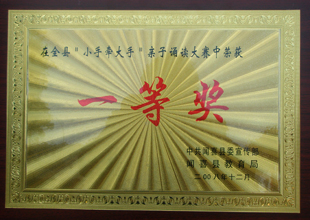 在全县“小手牵大手”亲子诵读大赛中荣获
一等奖
中共闻喜县委宣传部
闻喜县教育局
二00八年十二月